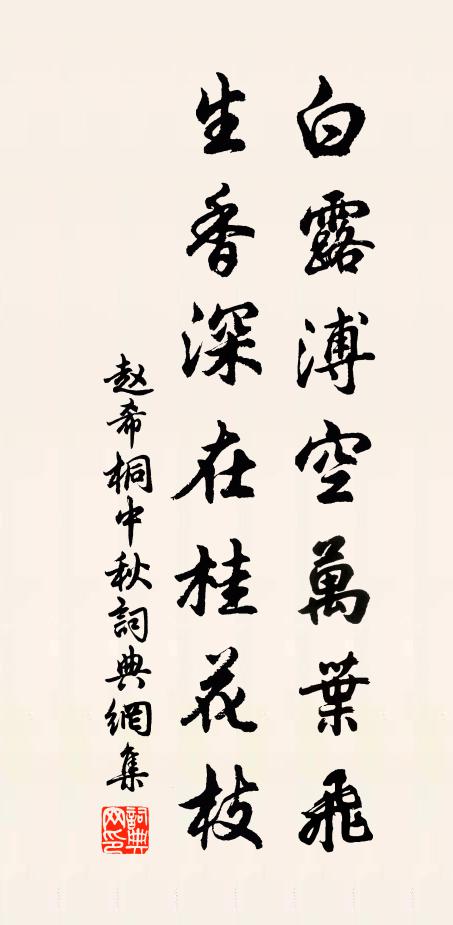 白露溥空萬葉飛
生香深在桂花枝
赵希桐中秋詞典網集
詞典网印